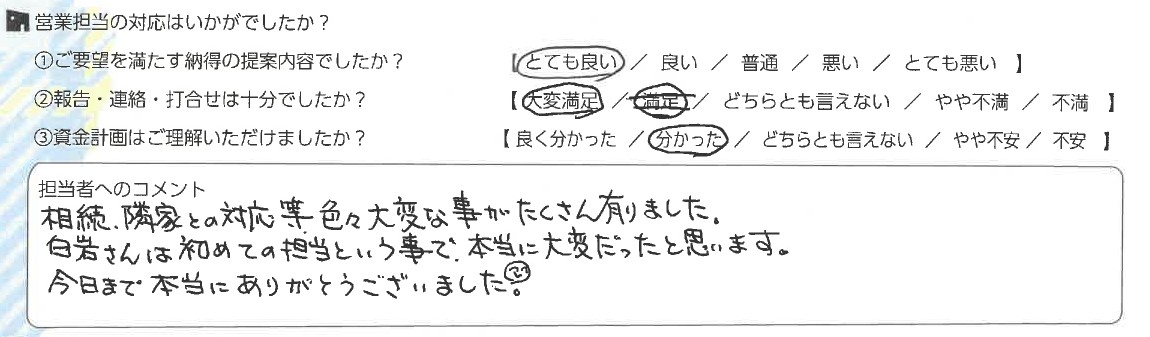 営業担当の対応はいかがでしたか？
①ご要望を満たす納得の提案内容でしたか？ 【 とても良い ／ 良い ／ 普通 ／ 悪い ／ とても悪い 】
②報告・連絡・打合せは十分でしたか？ 【 大変満足 ／ 満足 ／ どちらとも言えない ／ やや不満 ／ 不満 】
③資金計画はご理解いただけましたか？ 【 良く分かった ／ 分かった ／ どちらとも言えない ／ やや不安 ／ 不安 】
担当者へのコメント
相続、隣家との対応等色々大変な事がたくさん有りました。
白岩さんは初めての担当という事で、本当に大変だったと思います。
今日まで本当にありがとうございました。